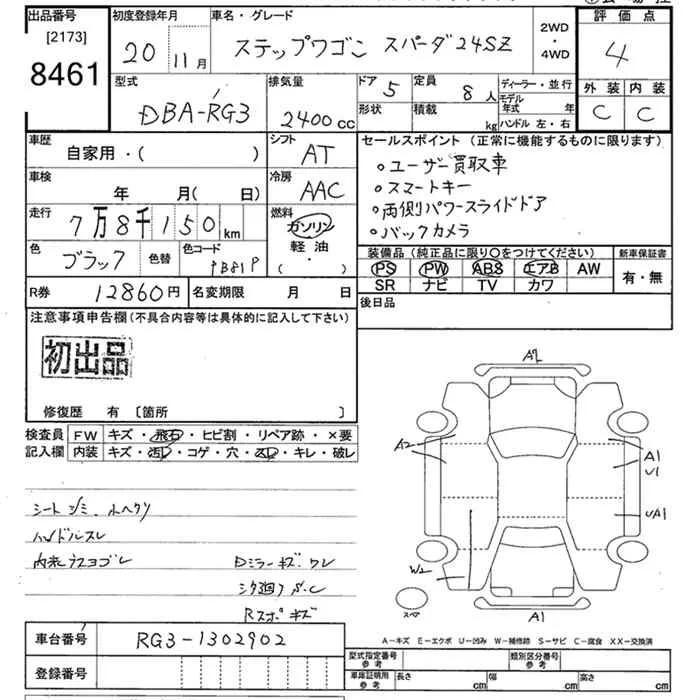 出品番号
[2173]
8461
初度登録年月
20 11月
車名・グレード
ステップワゴン スパーダ24SZ
2WD
・
4WD
評価点
4
外装 内装
C C
型式
DBA-RG3
排気量
2400cc
ドア 5
形状
定員 8人
積載 kg
ディーラー・並行
モデル年式 年
ハンドル 左・右
車歴
自家用・( )
シフト
AT
車検
年 月( 日)
冷房
AAC
走行
7万8千150km
燃料
ガソリン
軽油・
( )
色
ブラック
色替
色コード
R券 12860円
名変期限 月 日
セールスポイント (正常に機能するものに限ります)
○ユーザー買取車
○スマートキー
○両側パワースライドドア
○バックカメラ
装備品(純正品に限り○をつけてください)
PS PW ABS エアB AW
SR ナビ TV カワ
新車保証書
有・無
後日品
注意事項申告欄(不具合内容等は具体的に記入して下さい)
初出品
修復歴 有 〔箇所 〕
検査員記入欄
FW キズ・飛石・ヒビ割・リペア跡・×要
内装 キズ・汚レ・コゲ・穴・スレ・キレ・破レ
ハンドルスレ
Dミラーキズ ワレ
A2
A2
A1
U1
UA1
W2
A1
スペア
A-キズ E-エクボ U-凹み W-補修跡 S-サビ C-腐食 XX-交換済
車台番号 RG3-1302902
登録番号
型式指定番号
参考
類別区分番号
参考
車庫証明用
参考
長さ cm
幅 cm
高さ cm